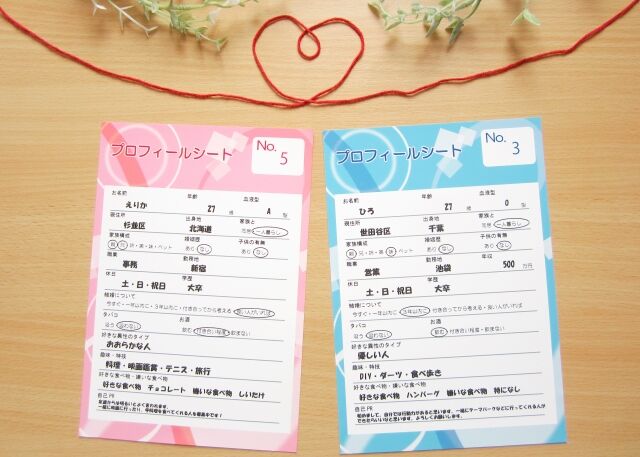 プロフィールシート
No.
5
お名前 年齢 血液型
えりか 27 歳 A 型
現住所 出身地 家族と
杉並区 北海道 同居・一人暮らし
家族構成 婚姻歴 子供の有無
親・兄・弟・姉・妹・ペット あり・なし あり・なし
職業 勤務地
事務 新宿
休日 学歴
土・日・祝日 大卒
結婚について
今すぐ・一年以内に・3年以内に・付き合ってから考える・良い人がいれば
タバコ お酒
吸う・吸わない 飲む・付き合い程度・飲まない
好きな異性のタイプ
おおらかな人
趣味・特技
料理・映画鑑賞・テニス・旅行
好きな食べ物・嫌いな食べ物
好きな食べ物 チョコレート 嫌いな食べ物 しいたけ
自己PR
友達からは明るいとよく言われます。
一緒に映画に行ったり、手料理を食べてくれる人を募集中です!
プロフィールシート
No.
3
お名前 年齢 血液型
ひろ 27 歳 O 型
現住所 出身地 家族と
世田谷区 千葉 同居・一人暮らし
家族構成 婚姻歴 子供の有無
親・兄・弟・姉・妹・ペット あり・なし あり・なし
職業 勤務地 年収
営業 池袋 500 万円
休日 学歴
土・日・祝日 大卒
結婚について
今すぐ・一年以内に・3年以内に・付き合ってから考える・良い人がいれば
タバコ お酒
吸う・吸わない 飲む・付き合い程度・飲まない
好きな異性のタイプ
優しい人
趣味・特技
DIY・ダーツ・食べ歩き
好きな食べ物・嫌いな食べ物
好きな食べ物 ハンバーグ 嫌いな食べ物 特になし
自己PR
初めまして、自分では行動力があると思います。一緒にテーマパークなどに行ってくれる人が
できたらいいなと思います。よろしくお願いします。